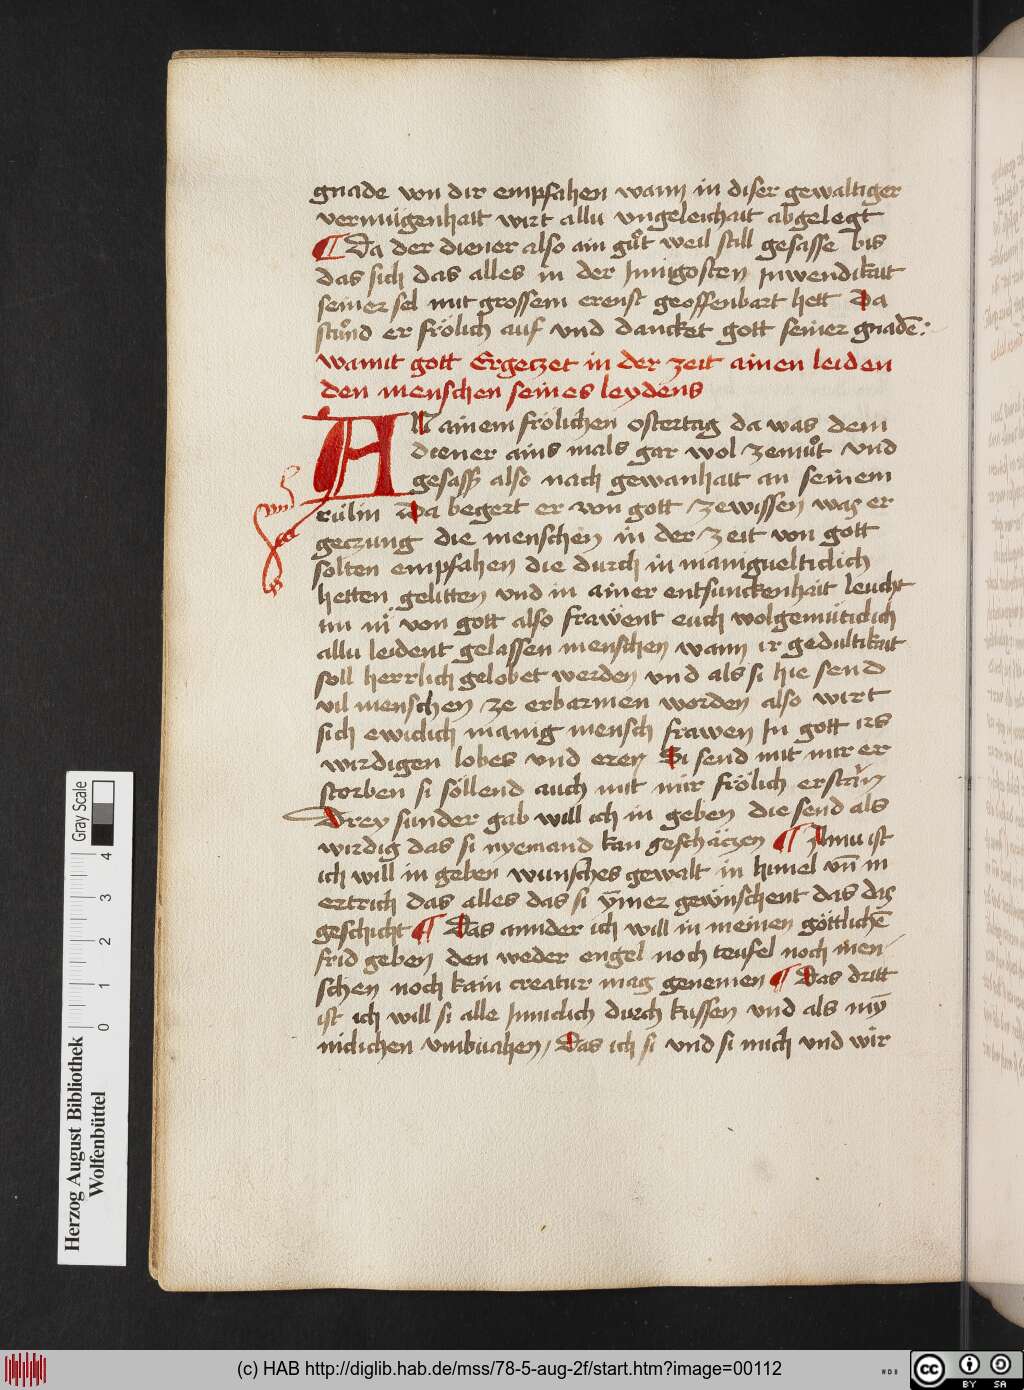 gnade von dir empfahen wann in diser gewaltiger
vermügenhait wirt allu vngeleichait abgelegt
¶ Da der diener also ain gůt weil still gesasse bis
das sich das alles in der Innigosten Inwendikait
seiner sel mit grossem erenst geoffenbart hett Da
stůnd er frölich auf vnd dancket gott seiner gnadē:
wamit gott Ergeczet in der zeit ainen leiden
den menschen seines leydens
An ainem frölichen ostertag da was dem
diener ains mals gar wol zemůt vnd
gesass also nach gewanhait an seinem
rülin Da begert er von gott zewissen was er
geczung die menschen in der zeit von gott
solten empfahen die durch in maniguelticlich
hetten gelitten vnd in ainer entsunckenhait leucht
im in von gott also fräwent euch wolgemüticlich
allu leident gelassen menschen wann ir gedultikait
soll herrlich gelobet werden vnd als si hie send
vil menschen ze erbarmen worden also wirt
sich ewiclich manig mensch frawen In gott irs
wirdigen lobes vnd eren Si send mit mir er
storben si söllend auch mit mir frölich erstān
Drey sunder gab will ich in geben die send als
wirdig das si nyemand kan geschäczen ¶ Ainu ist
ich will in geben wunsches gewalt in himel vn̄ in
ertrich das alles das si ymer gewünschent das das
geschicht ¶ Das annder ich will in meinen göttlichē
frid geben den weder engel noch teufel noch men
schen noch kain creatur mag genemen ¶ Das dritt
ist ich will si alle Inniclich durch kussen vnd als my̅
niclichen vmbuahen / Das ich si vnd si mich vnd wir
Herzog August Bibliothek
Wolfenbüttel
Gray Scale
0 1 2 3 4
(c) HAB http://diglib.hab.de/mss/78-5-aug-2f/start.htm?image=00112
cc BY SA